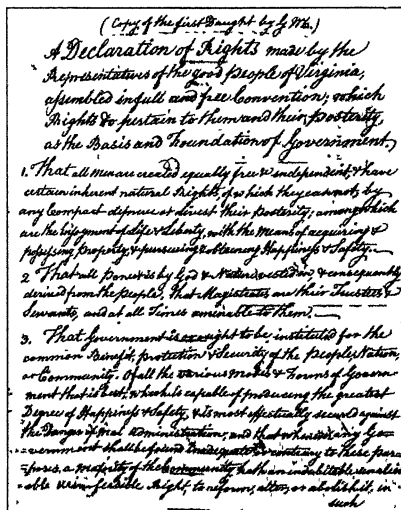 (Copy of the first Daught by G M.)
A Declaration of Rights made by the
Representatives of the good People of Virginia,
assembled in full and free Convention; which
Rights do pertain to them and their Posterity,
as the Basis and Foundation of Government.
1. That all Men are created equally free & independent, & have
certain inherent natural Rights, of which they cannot, by
any Compact, deprive or divest their Posterity; among which
are the Enjoyment of Life & Liberty, with the Means of acquiring &
possessing Property, & pursueing & obtaining Happiness & Safety.
2 That all Power is by God & Nature vested in, & consequently
derived from the People; that Magistrates are their Trustees &
Servants, and at all Times aminable to them.
3. That Government is or ought to be instituted for the
common Benefit, protection & Security of the People, Nation,
or Community. Of all the various Modes & Forms of Govern-
ment that is best, which is capable of producing the greatest
Degree of Happiness & Safety, & is most effectually secured against
the Danger of mal-administration; and that whenever any Go-
vernment shall be found inadequate or contrary to these pur-
poses, a majority of the Community hath an indubitable unalien-
able & indefeasible Right to reform, alter, or abolish it, in
such